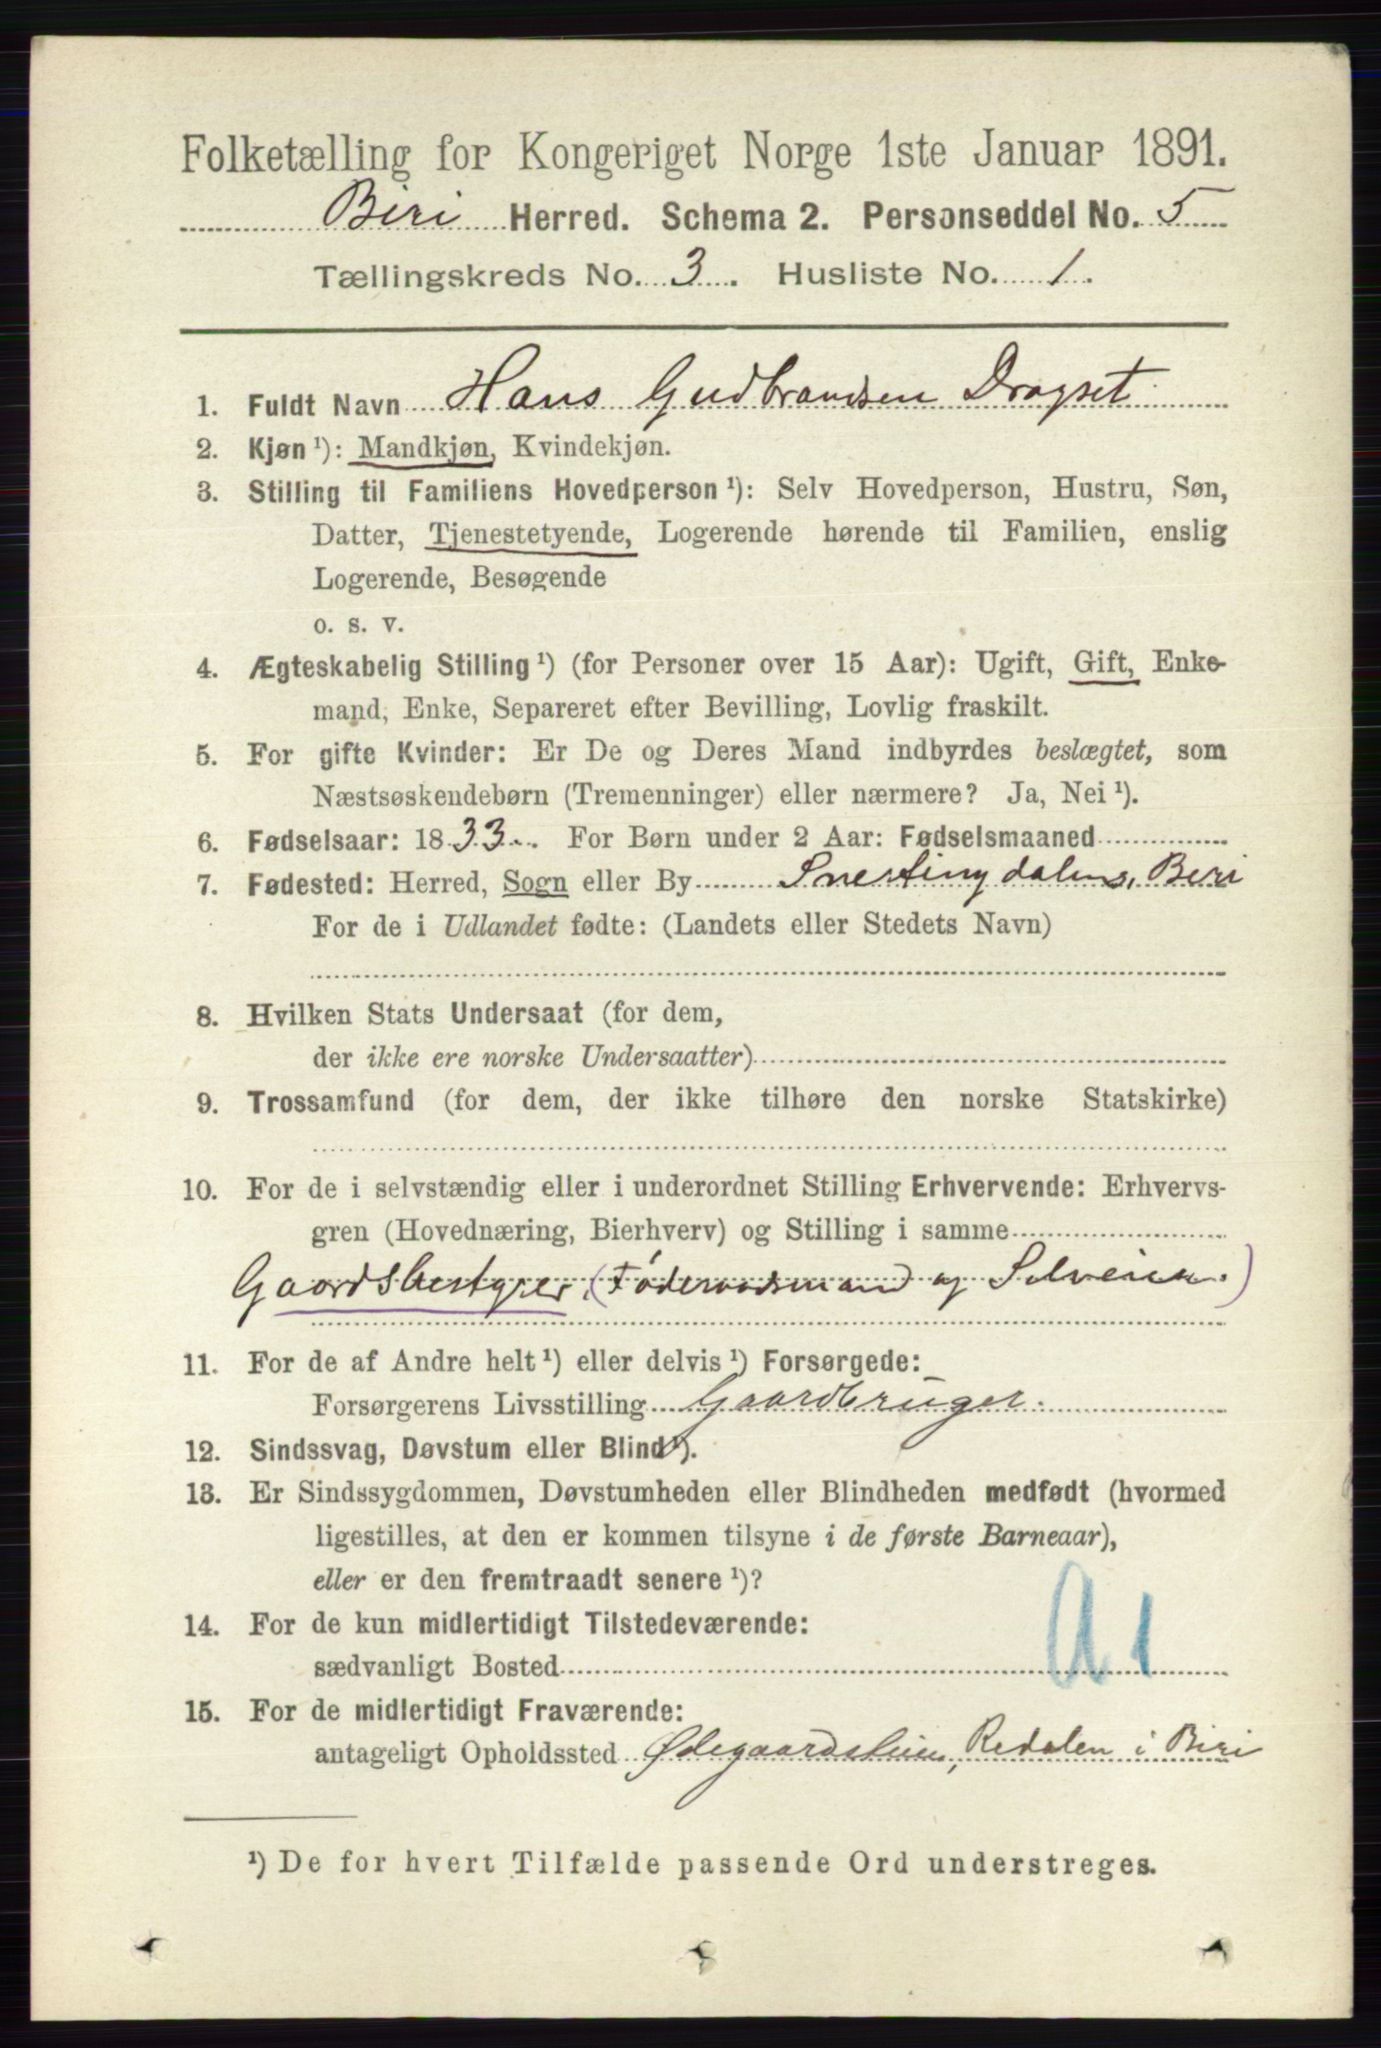 Folketælling for Kongeriget Norge 1ste Januar 1891.
Biri Herred. Schema 2. Personseddel No. 5
Tællingskreds No. 3. Husliste No. 1.
1. Fuldt Navn Hans Gudbrandsen Dragset
2. Kjøn ¹): Mandkjøn, Kvindekjøn.
3. Stilling til Familiens Hovedperson ¹): Selv Hovedperson, Hustru, Søn,
Datter, Tjenestetyende, Logerende hørende til Familien, enslig
Logerende, Besøgende
o. s. v.
4. Ægteskabelig Stilling ¹) (for Personer over 15 Aar): Ugift, Gift, Enke-
mand, Enke, Separeret efter Bevilling, Lovlig fraskilt.
5. For gifte Kvinder: Er De og Deres Mand indbyrdes beslægtet, som
Næstsøskendebørn (Tremenninger) eller nærmere? Ja, Nei ¹).
6. Fødselsaar: 1833. For Børn under 2 Aar: Fødselsmaaned
7. Fødested: Herred, Sogn eller By Snertingdalens, Biri
For de i Udlandet fødte: (Landets eller Stedets Navn)
8. Hvilken Stats Undersaat (for dem,
der ikke ere norske Undersaatter)
9. Trossamfund (for dem, der ikke tilhøre den norske Statskirke)
10. For de i selvstændig eller i underordnet Stilling Erhvervende: Erhvervs-
gren (Hovednæring, Bierhverv) og Stilling i samme
Gaardsbestyrer, (Føderaadsmand og Selveier.)
11. For de af Andre helt ¹) eller delvis ¹) Forsørgede:
Forsørgerens Livsstilling Gaardbruger.
12. Sindssvag, Døvstum eller Blind ¹).
13. Er Sindssygdommen, Døvstumheden eller Blindheden medfødt (hvormed
ligestilles, at den er kommen tilsyne i de første Barneaar),
eller er den fremtraadt senere ¹)?
14. For de kun midlertidigt Tilstedeværende:
sædvanligt Bosted a 1
15. For de midlertidigt Fraværende:
antageligt Opholdssted Ødegaardsteien, Redalen i Biri
¹) De for hvert Tilfælde passende Ord understreges.